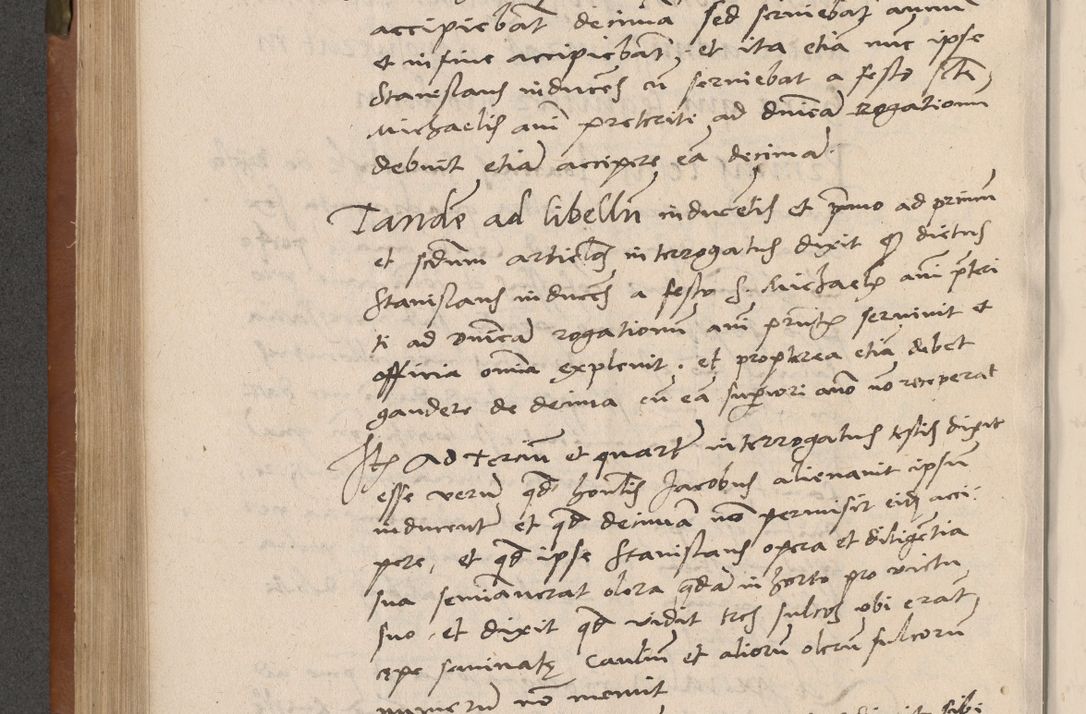 accipiebat decima sed serviebat annu
et in fine accipiebat, et ita etia nuc ipse
Stanislaus inducens cu serviebat a festo scti
Michaelis anni preteriti ad dnica rogationu
debuit etia accipere ea decima
Tande ad libellu inducetis et primo ad primu
et scdum articlos interrogatus dixit q dictus
Stanislaus inducens a festo S. Michaelis anni preteri
ti ad dnica rogationu anni pntis servivit et
officia omia explevit, et propterea etia debet
gaudere de decima cu ea superiori anno no receperat
Ite Ad terciu et quartu interrogatus testis dixit
esse veru qd honlis Jacobus alienavit ipsu
inducente et qd decima no permisit eide acci-
pere, et qd ipse Stanislaus opera et diligetia
sua seminaverat olera queda in horto pro victu
suo, et dixit qd vidit tres sulcos ubi erat
cepe seminate Cauliu et alioru oleru sulcoru
numeru no meminit
sibi